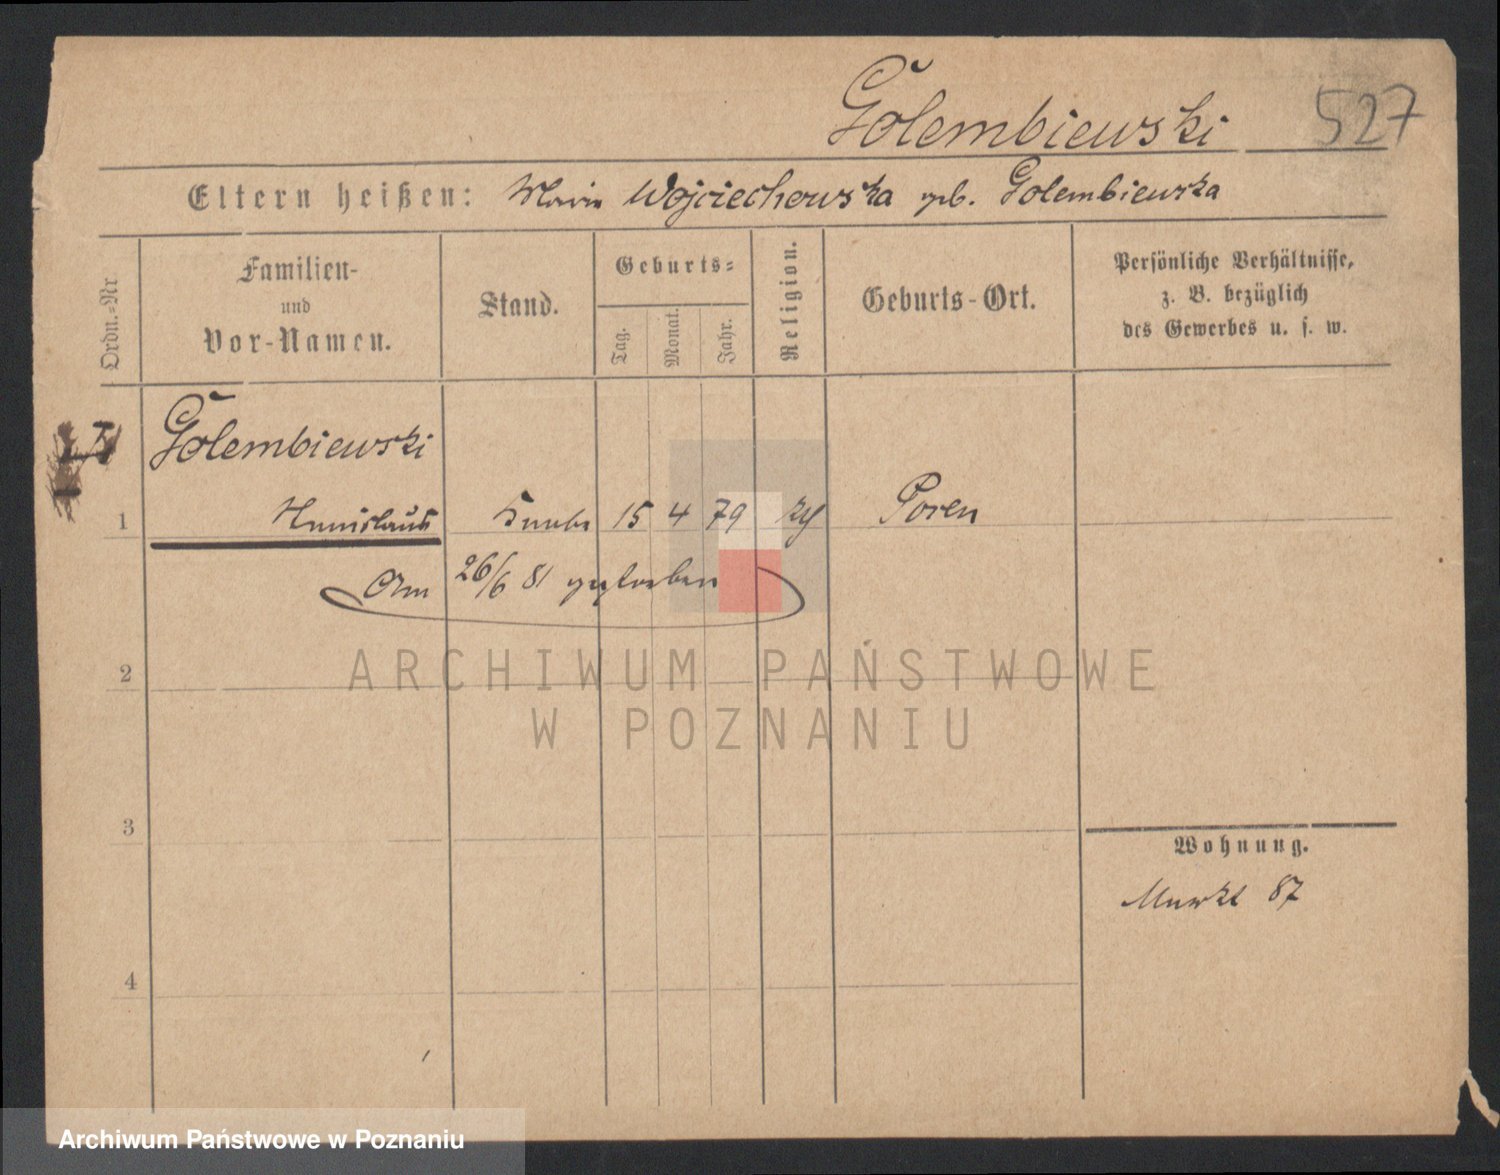 Golembiewski 527
Eltern heißen: Maria Wojciechowska geb. Golembiewska
Ordn.-Nr
Familien-
und
Vor-Namen.
Stand.
Geburts-
Tag.
Monat.
Jahr.
Religion.
Geburts-Ort.
Persönliche Verhältnisse,
z. B. bezüglich
des Gewerbes u. s. w.
Golembiewski
1 Knabe 15 4 79 Posen
Am 26/6 81 gestorben
ARCHIWUM PAŃSTWOWE
W POZNANIU
2
3
Wohnung.
Markt 87
4
Archiwum Państwowe w Poznaniu